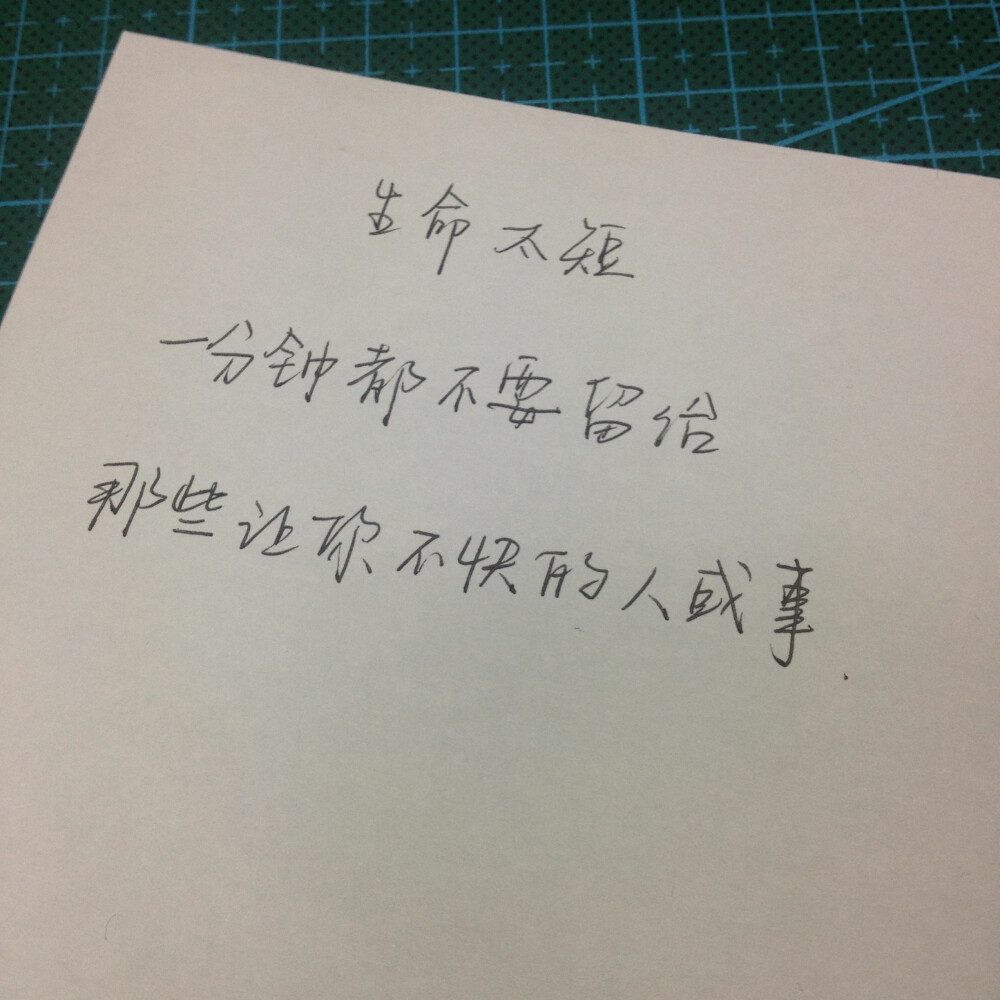 生命太短
一分钟都不要留给
那些让你不快的人或事.